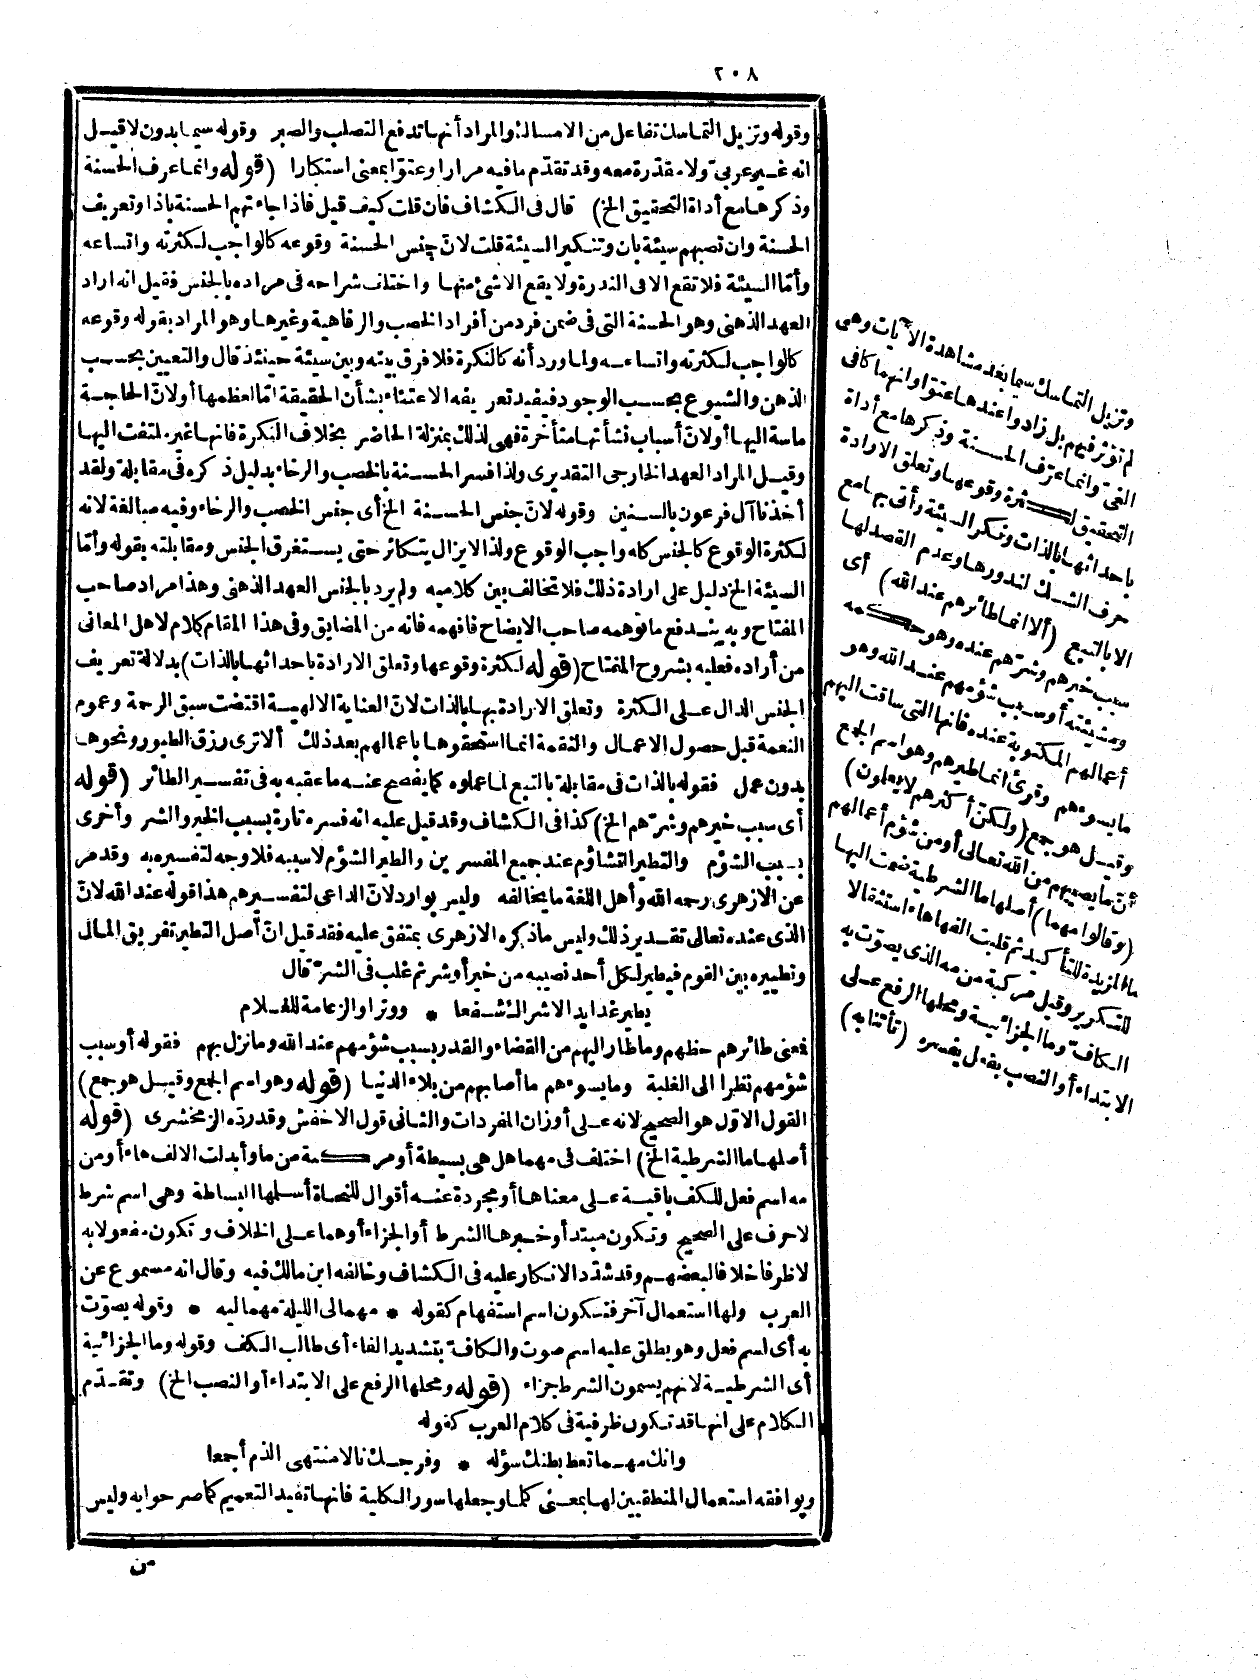 ٢٠٨
وقوله وتزيل التماسك تفاعل من الامساك والمراد أنها تدفع التصلب والصبر وقوله سيما بدون لا قيل
انه غير عربيّ ولا مقدّرة معه وقد تقدّم ما فيه مرارا وعتوّا بمعنى استكبارا (قوله وانما عرف الحسنة
وذكرها مع أداة التحقيق الخ) قال فى الكشاف فان قلت كيف قيل فاذا جاءتهم الحسنة باذا وتعريف
الحسنة وان تصبهم سيئة بان وتنكير السيئة قلت لانّ جنس الحسنة وقوعه كالواجب لكثرته واتساعه
وأمّا السيئة فلا تقع الا فى الندرة ولا يقع الا شئ منها واختلف شراحه فى مراده بالجنس فقيل انه اراد
العهد الذهنى وهو الحسنة التى فى ضمن فرد من أفراد الخصب والرفاهية وغيرها وهو المراد بقوله وقوعه
كالواجب لكثرته واتساعه ولما ورد أنه كالنكرة فلا فرق بينه وبين سيئة حينئذ قال والتعيين بحسب
الذهن والشيوع بحسب الوجود فيفيد تعريفه الاعتناء بشأن الحقيقة امّا لعظمها أولانّ الحاجة
ماسة اليها أولانّ أسباب نشأتها متأخرة فهى لذلك بمنزلة الحاضر بخلاف النكرة فانها غير ملتفت اليها
وقيل المراد العهد الخارجى التقديرى ولذا فسر الحسنة بالخصب والرخاء بدليل ذكره فى مقابلة ولقد
أخذنا آل فرعون بالسنين وقوله لانّ جنس الحسنة الخ أى جنس الخصب والرخاء وفيه مبالغة لانه
لكثرة الوقوع كالجنس كله واجب الوقوع ولذا لا يزال يتكاثر حتى يستغرق الجنس ومقابلته بقوله وأمّا
السيئة الخ دليل على ارادة ذلك فلا تخالف بين كلاميه ولم يرد بالجنس العهد الذهنى وهذا مراد صاحب
المفتاح وبه يندفع ما توهمه صاحب الايضاح فافهمه فانه من المضايق وفى هذا المقام كلام لاهل المعانى
من أراده فعليه بشروح المفتاح (قوله لكثرة وقوعها وتعلق الارادة باحداثها بالذات) بدلالة تعريف
الجنس الدال على الكثرة وتعلق الارادة بها بالذات لانّ العناية الالهية اقتضت سبق الرحمة وعموم
النعمة قبل حصول الاعمال والنقمة انما استحقوها باعمالهم بعد ذلك ألا ترى رزق الطيور ونحوها
بدون عمل فقوله بالذات فى مقابلة بالتبع لما عملوه كما يفصح عنه ما عقبه به فى تفسير الطائر (قوله
أى سبب خيرهم وشرّهم الخ) كذا فى الكشاف وقد قيل عليه انه فسره تارة بسبب الخير والشر وأخرى
بسبب الشؤم والتطير التشاؤم عند جميع المفسرين والطير الشؤم لا سببه فلا وجه لتفسيره به وقد مر
عن الازهرى رحمه الله وأهل اللغة ما يخالفه وليس بوارد لانّ الداعى لتفسيرهم هذا قوله عند الله لانّ
الذى عنده تعالى تقدير ذلك وليس ما ذكره الازهرى بمتفق عليه فقد قيل انّ أصل التطير تفريق المال
وتطييره بين القوم فيطير لكل أحد نصيبه من خير أو شر ثم غلب فى الشرّ قال
يطير غدايد الاشراك شفعا * ووترا والزعامة للغلام
فمعنى طائرهم حظهم وما طار اليهم من القضاء والقدر بسبب شؤمهم عند الله وما نزل بهم فقوله أو سبب
شؤمهم نظرا الى الغلبة وما يسوءهم ما أصابهم من بلاء الدنيا (قوله وهو اسم الجمع وقيل هو جمع)
القول الاوّل هو الصحيح لانه على أوزان المفردات والثانى قول الاخفش وقد ردّه الزمخشرى (قوله
أصلها ما الشرطية الخ) اختلف فى مهما هل هى بسيطة أو مركبة من ما وأبدلت الالف هاء أو من
مه اسم فعل للكف باقية على معناها أو مجردة عنه أقوال للنحاة أسلمها البساطة وهى اسم شرط
لا حرف على الصحيح وتكون مبتدأ وخبرها الشرط أو الجزاء أو هما على الخلاف وتكون مفعولا به
لا ظرفا خلافا لبعضهم وقد شدّد الانكار عليه فى الكشاف وخالفه ابن مالك فيه وقال انه مسموع عن
العرب ولها استعمال آخر فتكون اسم استفهام كقوله * مهما لى الليلة مهما ليه * وقوله يصوّت
به أى اسم فعل وهو يطلق عليه اسم صوت والكافّ بتشديد الفاء أى طالب الكف وقوله وما الجزائية
أى الشرطية لانهم يسمون الشرط جزاء (قوله ومحلها الرفع على الابتداء أو النصب الخ) وتقدّم
الكلام على انها قد تكون ظرفية فى كلام العرب كقوله
وانك مهما تعط بطنك سؤله * وفرجك نالا منتهى الذم أجمعا
ويوافقه استعمال المنطقيين لها بمعنى كلما وجعلها سور الكلية فانها تفيد التعميم كما صرحوا به وليس
من
وتزيل التماسك سيما بعد مشاهدة الآيات وهى
لم تؤثر فيهم بل زادوا عندها عتوّا وانهما كافى
الغىّ وانما عرّف الحسنة وذكرها مع أداة
التحقيق لكثرة وقوعها وتعلق الارادة
باحداثها بالذات ونكر السيئة وأتى بها مع
حرف الشك لندورها وعدم القصد لها
الا بالتبع (ألا انما طائرهم عند الله) أى
سبب خيرهم وشرّهم عنده وهو حكمه
ومشيئته أو سبب شؤمهم عند الله وهو
أعمالهم المكتوبة عنده فانها التى ساقت اليهم
ما يسوءهم وقرئ انما طيرهم وهو اسم الجمع
وقيل هو جمع (ولكنّ أكثرهم لا يعلمون)
أنّ ما يصيبهم من الله تعالى أو من شؤم أعمالهم
(وقالوا مهما) أصلها ما الشرطية ضمت اليها
ما المزيدة للتأكيد ثم قلبت الفها هاء استثقالا
للتكرير وقيل مركبة من مه الذى يصوّت به
الكافّ وما الجزائية ومحلها الرفع على
الابتداء أو النصب بفعل يفسره (تأتنا به)